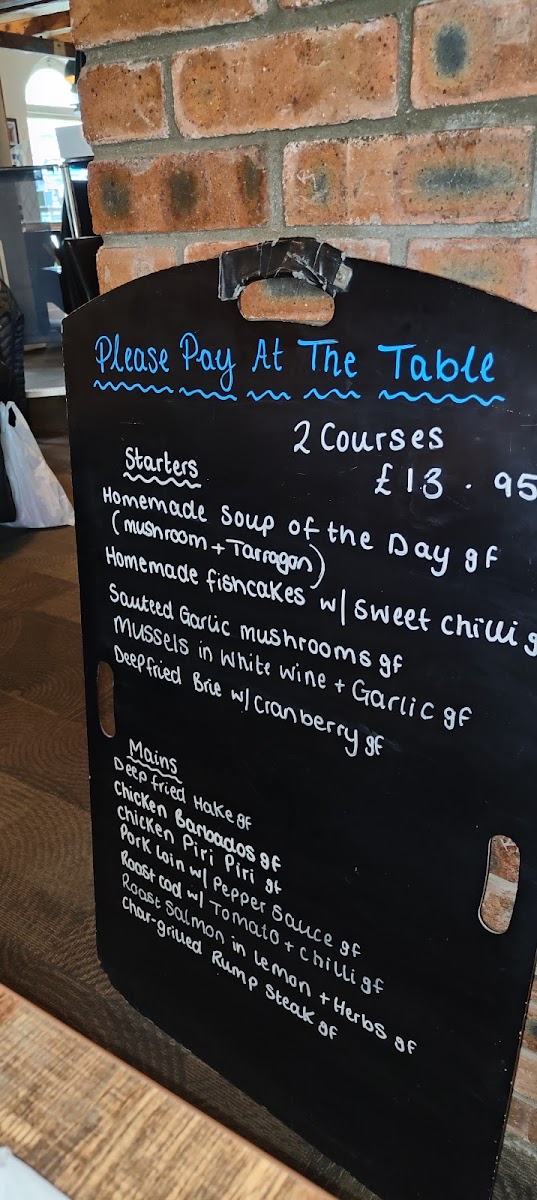 Please Pay At The Table
2 Courses
£13.95
Starters
Homemade Soup of the Day gf
(mushroom + Tarragon)
Homemade fishcakes w/ sweet chilli g
Sauteed Garlic mushrooms gf
Mussels in White wine + Garlic gf
Deepfried Brie w/ cranberry gf
Mains
Deepfried Hake gf
Chicken Barbados gf
Chicken Piri Piri gf
Pork Loin w/ Pepper Sauce gf
Roast cod w/ Tomato + chilli gf
Roast Salmon in Lemon + Herbs gf
Char-grilled Rump Steak gf